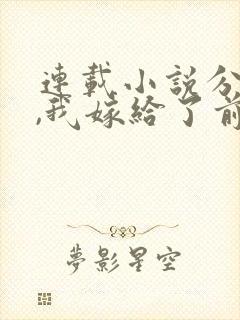 連載小説分
,我嫁給了前
夢影星空